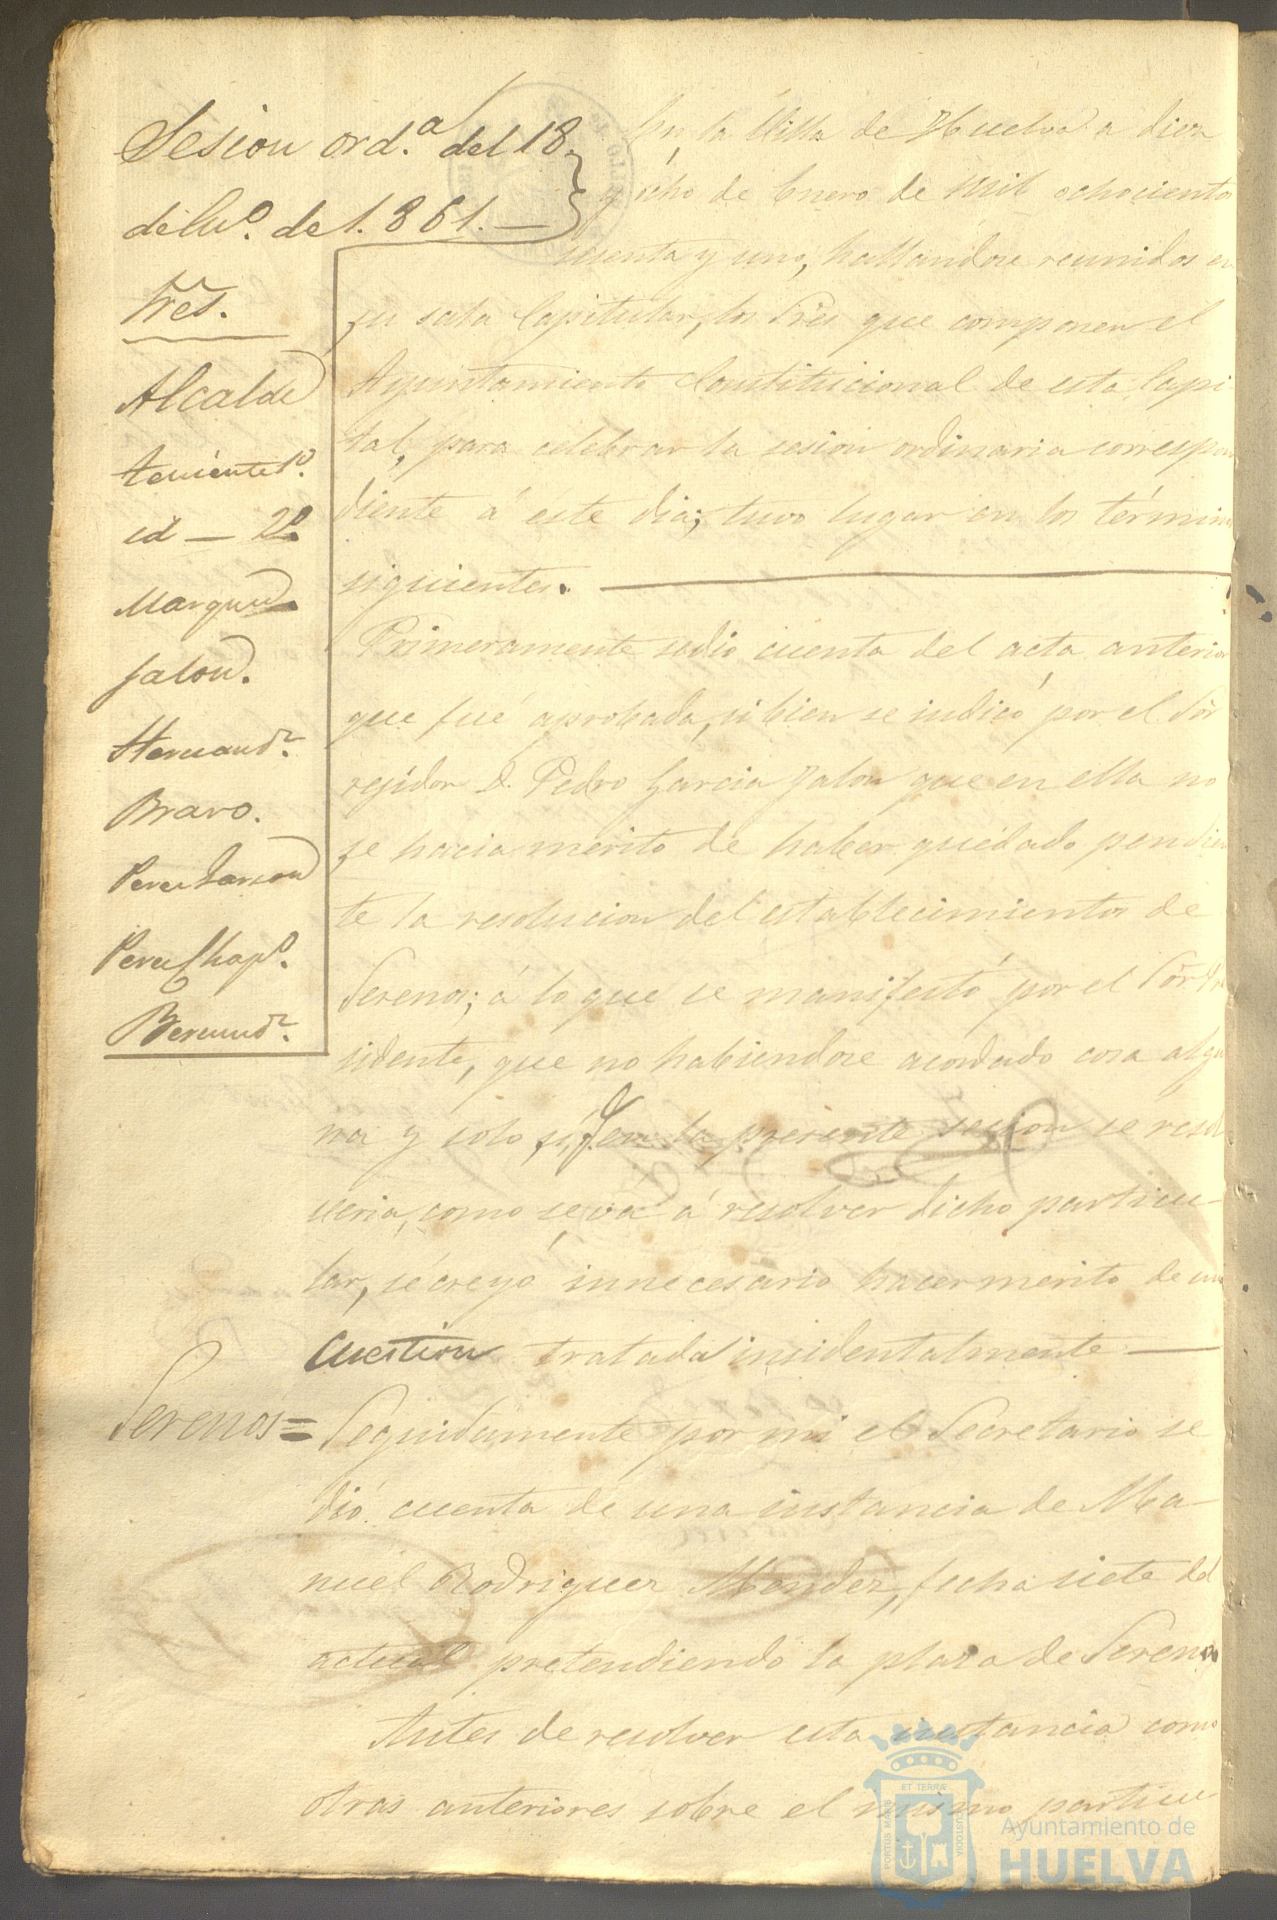 Sesion ord.ª del 18
de En.º de 1.861.—
Sres.
Alcalde
teniente 1º.
id — 2º.
Marquez
Jalon.
Hernandz.
Bravo.
Perez Garzon
Perez Chapº.
Bermudz.
En la Villa de Huelva a diez
y ocho de Enero de mil ochocientos
sesenta y uno, hallandose reunidos en
su sala Capitular, los Sres que componen el
Ayuntamiento Constitucional de esta Capi-
tal, para celebrar la sesion ordinaria correspon
diente á este dia; tuvo lugar en los términos
siguientes. —
Primeramente se dio cuenta del acta anterior
que fué aprobada, si bien se indicó por el Sor
rejidor D. Pedro Garcia Jalon que en ella no
se hacia merito de haber quedado pendien
te la resolucion del establecimiento de
Serenos; á lo que se manifestó por el Sor Pre
sidente, que no habiendose acordado cosa algu
na y solo sí, q. en la presente sesion se resol
veria, como se vá á resolver dicho particu-
lar, se creyó innecesario hacer merito de una
Cuestion tratada insidentalmente —
Serenos = Seguidamente por mi el Secretario se
dió cuenta de una instancia de Ma-
nuel Rodriguez Mendez, fecha siete del
actual pretendiendo la plaza de Sereno
Antes de resolver esta instancia como
otras anteriores sobre el mismo particu
PORTUS MARIS
ET TERRÆ
CUSTODIA
Ayuntamiento de
HUELVA